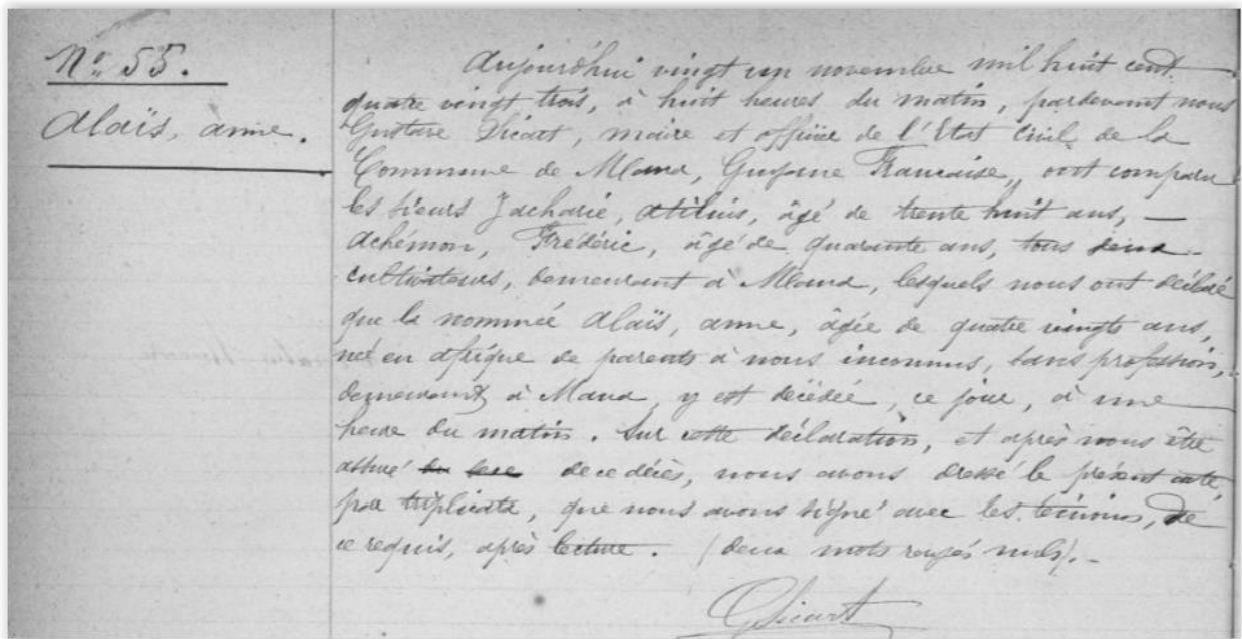 N° 55.
Alaïs, anne.
Aujourd'hui vingt un novembre mil huit cent
quatre vingt trois, à huit heures du matin, pardevant nous
Gustave Sicart, maire et officier de l'Etat civil de la
Commune de Mana, Guyane Francaise, ont comparu
les sieurs Zacharie, Atilius, âgé de trente huit ans, —
Achémon, Frédéric, âgé de quarante ans, tous deux
cultivateurs, demeurant à Mana, lesquels nous ont déclaré
que la nommée Alaïs, anne, âgée de quatre vingts ans,
née en afrique de parents à nous inconnus, sans profession,
demeurant à Mana, y est décédée, ce jour, à une
heure du matin. Sur cette déclaration, et après nous être
assuré de ce décès, nous avons dressé le présent acte,
par triplicata, que nous avons signé avec les témoins, de
ce requis, après lecture. (deux mots rayés nuls). -
GSicart